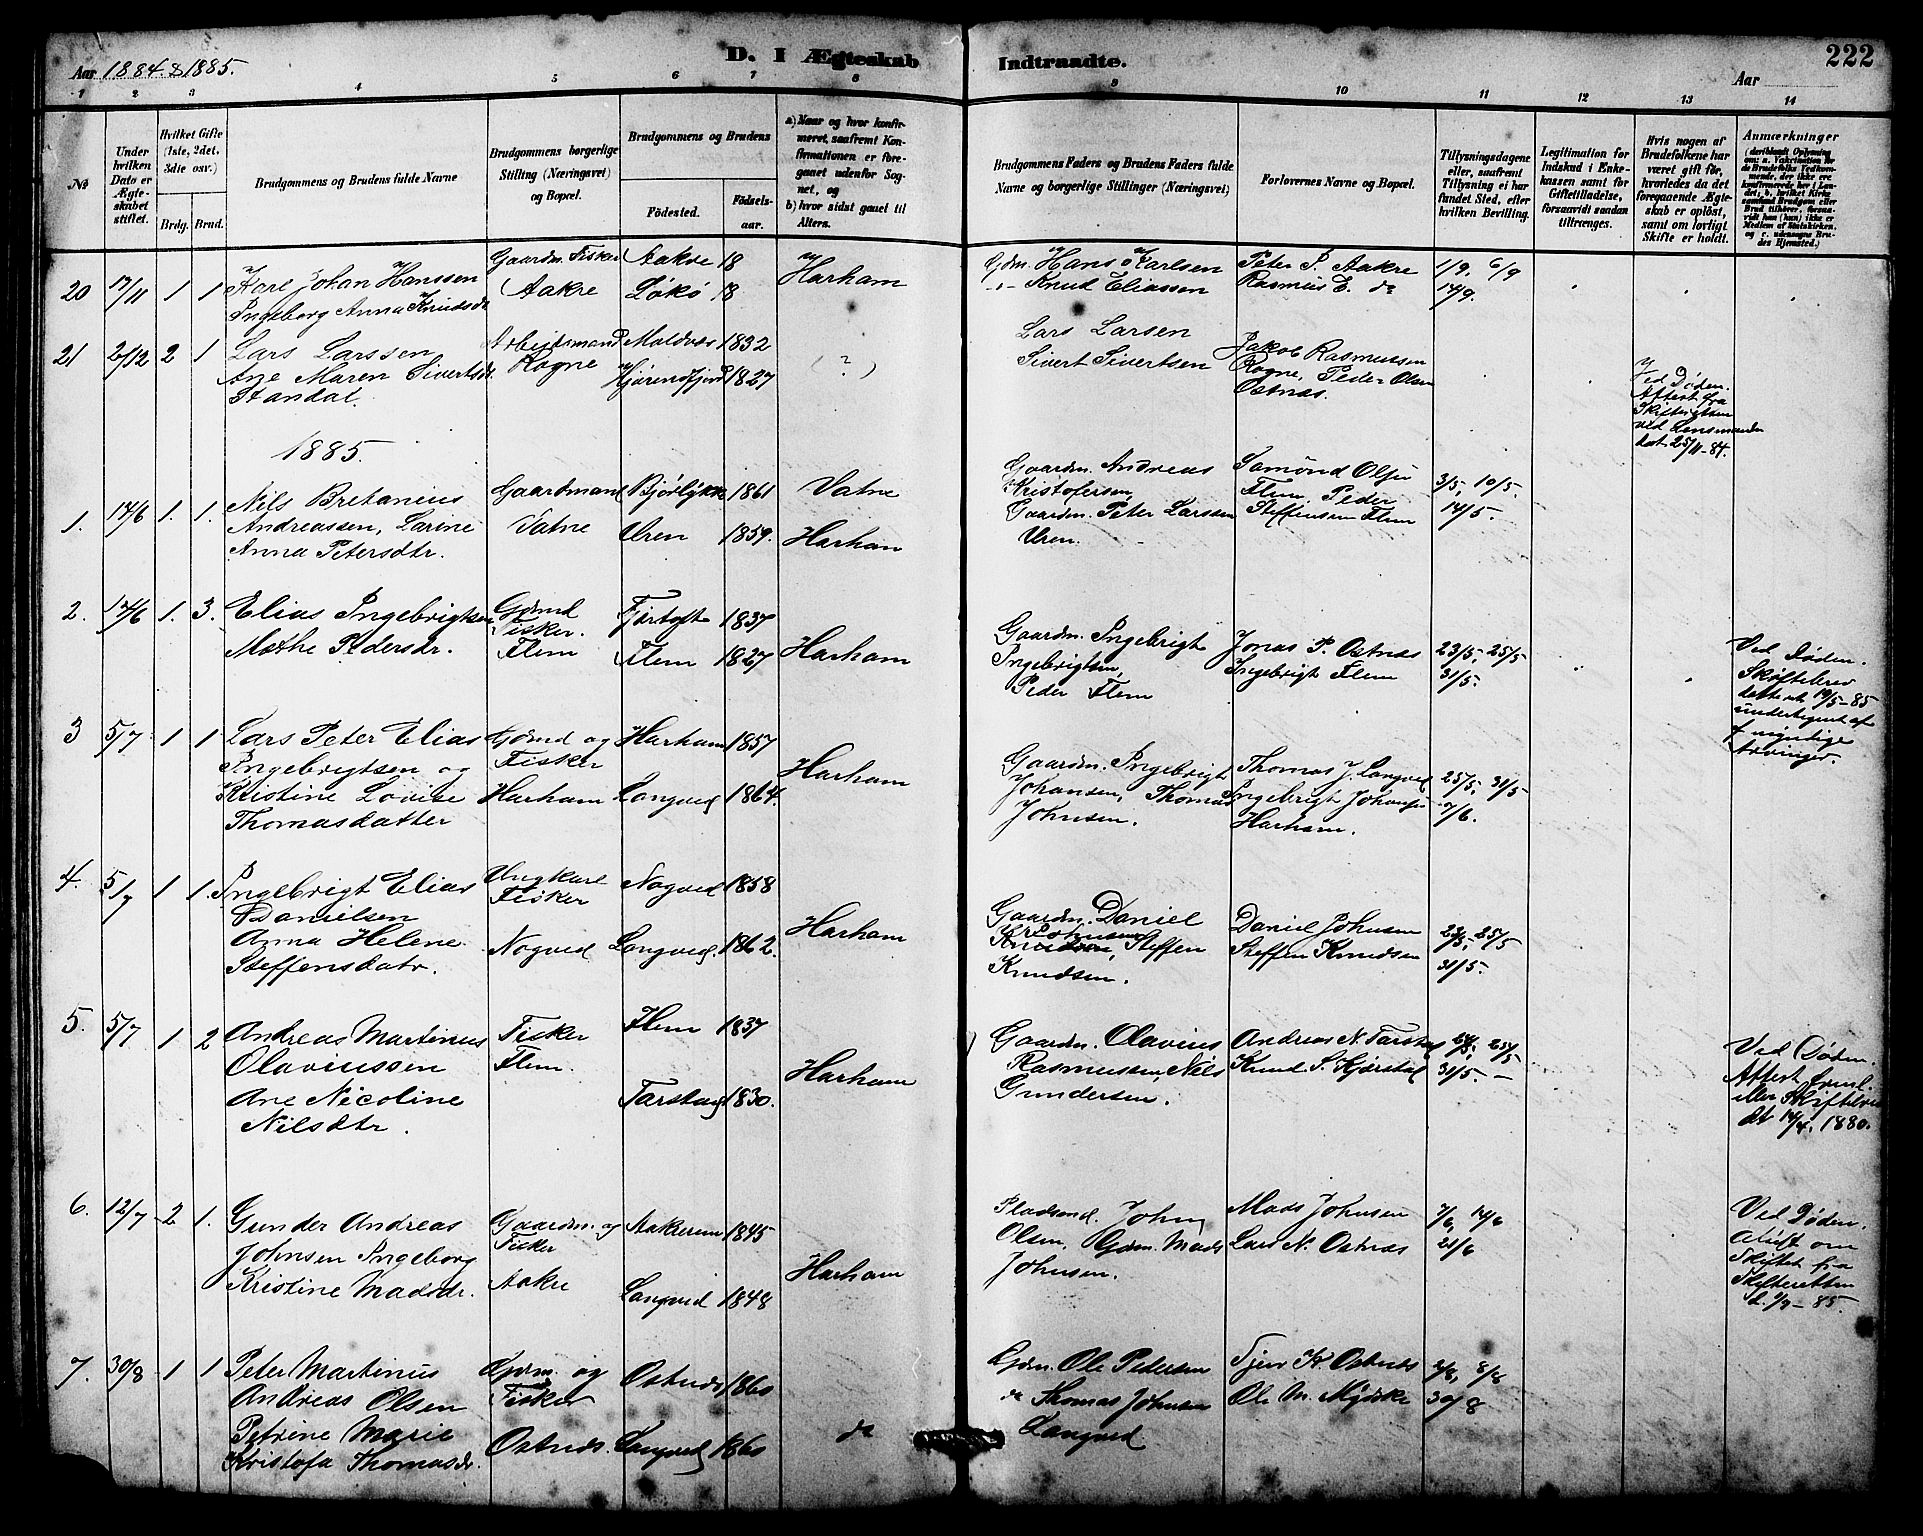 Aar 1884 & 1885.
D. I Ægteskab Indtraadte.
Aar
222
1 2 3 4 5 6 7 8 9 10 11 12 13 14
No
Under hvilken Dato er Ægteskabet stiftet.
Hvilket Gifte (1ste, 2det, 3die osv.)
Brdg. Brud.
Brudgommens og Brudens fulde Navne
Brudgommens borgerlige Stilling (Næringsvei) og Bopæl.
Brudgommens og Brudens
Fødested.
Fødselsaar.
a) Naar og hvor konfirmeret, saafremt Konfirmationen er foregaaet udenfor Sognet, og
b) hvor sidst gaaet til Alters.
Brudgommens Faders og Brudens Faders fulde Navne og borgerlige Stillinger (Næringsvei)
Forlovernes Navne og Bopæl.
Tillysningsdagene eller, saafremt Tillysning ei har fundet Sted, efter hvilken Bevilling.
Legitimation for Indskud i Enkekassen samt for Giftetilladelse, forsaavidt saadan tiltrænges.
Hvis nogen af Brudefolkene har været gift før, hvorledes da det foregaaende Ægteskab er opløst, samt om lovligt Skifte er holdt.
Anmærkninger
20 17/11 1 1 Karl Johan Hanssen Gaardm. Fisker Aakre 18 Harham Gdm. Hans Karlsen Peter P. Aakre 1/9, 6/9
Ingeborg Anna Knudsdr Aakre Løkø 18 Knud Eliassen Rasmus E. do 14/9.
21 21/12 2 1 Lars Larssen Arbejdsmand Moldnes 1832 (?) Lars Larsen Jakob Rasmussen
Ane Maren Sivertsdr. Rogne Hjørendfjord 1827 Sivert Sivertsen Rogne, Peder Olsen
Standal Ostnæs.
Ved Døden.
Attest fra
Skifteretten
ved Lensmanden
dat. 25/11-84.
1885.
1. 14/6 1. 1. Nils Bretanius Gaardmand Bjørlykke 1861 Vatne Gaardm. Andreas Samond Olsen 3/5, 10/5.
Andreassen, Larine Vatne Uren 1859. Harham Kristofersen, Flem, Peder 14/5.
Anna Petersdtr. Gaardm. Peter Larssen Steffensen Flem
Uren.
2. 14/6 1. 3. Elias Ingebrigtsen Gdmd Fjørtoft 1837 Harham Gaardm. Ingebrigt Jonas P. Ostnæs 23/5, 25/5
Mathe Pedersdr. Fisker. Flem 1827 Ingebrigtsen, Ingebrigt Flem 31/5.
Flem Peder Flem
Ved Døden.
Skiftebrev
dateret 19/5-85
undertegnet af
myndige
Arvinger.
3 5/7 1 1 Lars Peter Elias Gdmd og Harham 1857 Harham Gaardm. Ingebrigt Thomas J. Langved 25/5, 31/5
Ingebrigtsen og Fisker Johansen, Thomas Ingebrigt Johansen 7/6.
Kristine Lovise Harham Langved 1864. Johnsen. Harham.
Thomasdatter
4. 5/7 1 1. Ingebrigt Elias Ungkarl Nogved 1858 Harham Gaardm. Daniel Daniel Johnsen 23/5, 25/5
Danielsen Fisker Johnsen, Steffen Steffen Knudsen 31/5.
Anna Helene Nogved Langved. 1862. Knudsen.
Steffensdatr.
5. 5/7 1 2 Andreas Martinus Fisker Flem 1837 Harham Gaardm. Olavius Andreas N. Tarstad 24/5, 25/5
Olaviussen Flem. Rasmussen, Nils Knud S. Kjørstad 31/5.
Ane Nicoline Tarstad 1830. Gundersen.
Nilsdtr.
Ved Døden.
Attest
eller Skiftebrev
dt 14/4. 1880.
6. 12/7 2 1. Gunder Andreas Gaardm. og Aakerem 1845 Harham Pladsmd. John Mads Johnsen 7/6, 14/6
Johnsen Ingeborg Fisker Olsen, Gdm. Mads Lars N. Ostnæs 21/6
Kristine Madsdr. Aakre Langved 1848 Johnsen.
Ved Døden.
Attest om
Skiftet fra
Skifteretten
-85.
7. 30/8 1 1 Peter Martinus Gdm. og Ostnæs 1860 do Gdm. Ole Petersen K. Ostnæs 2/8, 8/8
Andreas Olsen Fisker do Thomas Johnsen Ole M. 30/8
Petrine Marie Ostnæs. Langved 1860 Langved
Kristofa Thomasdr.